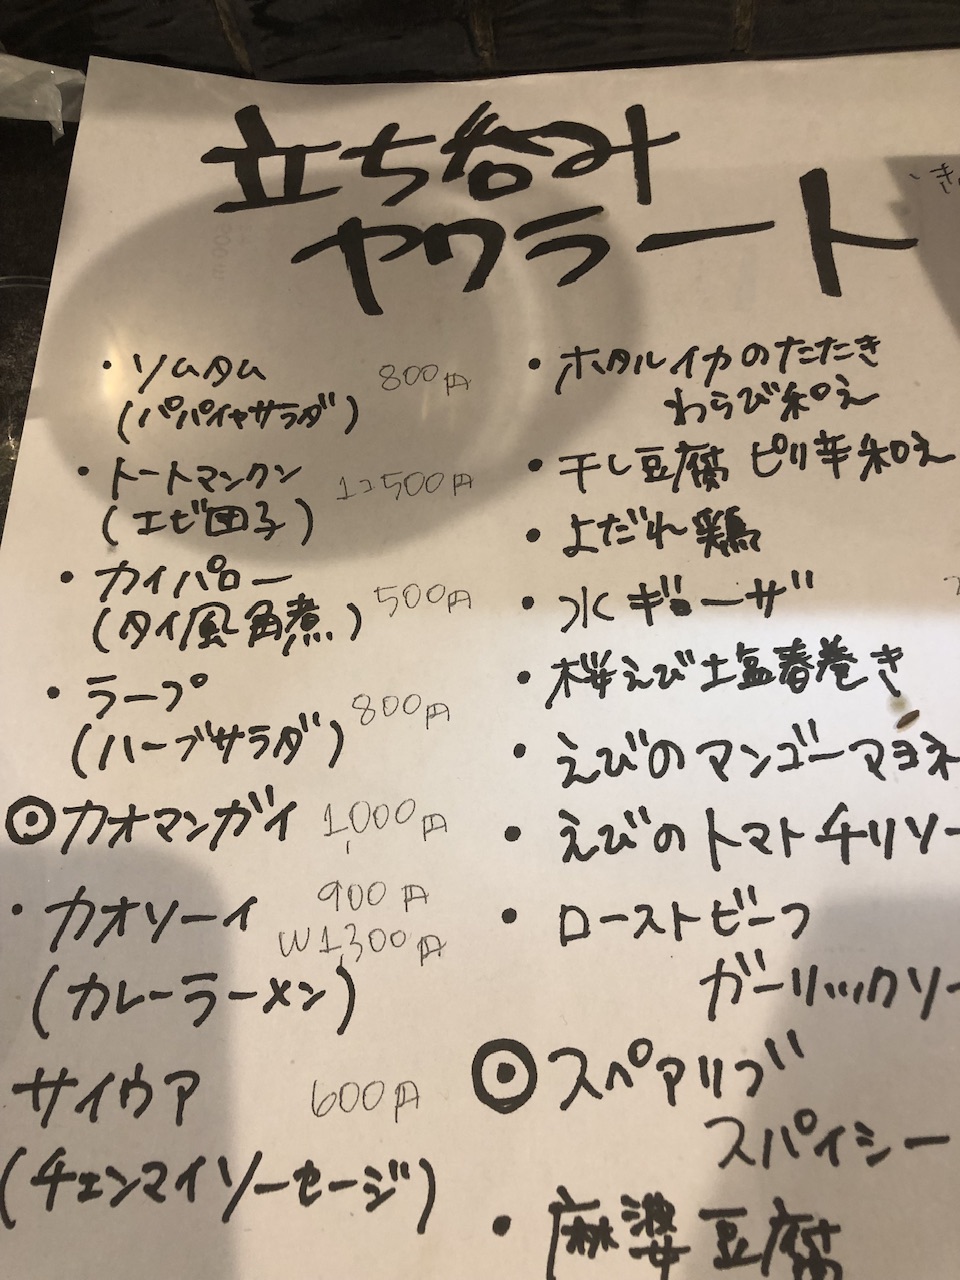 立ち呑み
ヤワラート
・ソムタム 800円
(パパイヤサラダ)
・トートマンクン 1コ500円
(エビ団子)
・カイパロー 500円
(タイ風角煮)
・ラープ 800円
(ハーブサラダ)
◎カオマンガイ 1,000円
・カオソーイ 900円
W1,300円
(カレーラーメン)
サイウア 600円
(チェンマイソーセージ)
・ホタルイカのたたき
わらび和え
・干し豆腐 ピリ辛和え
・よだれ鶏
・水ギョーザ
・桜えび塩春巻き
・えびのマンゴーマヨネ
・えびのトマトチリソー
・ローストビーフ
ガーリックソー
◎スペアリブ
スパイシー
・麻婆豆腐